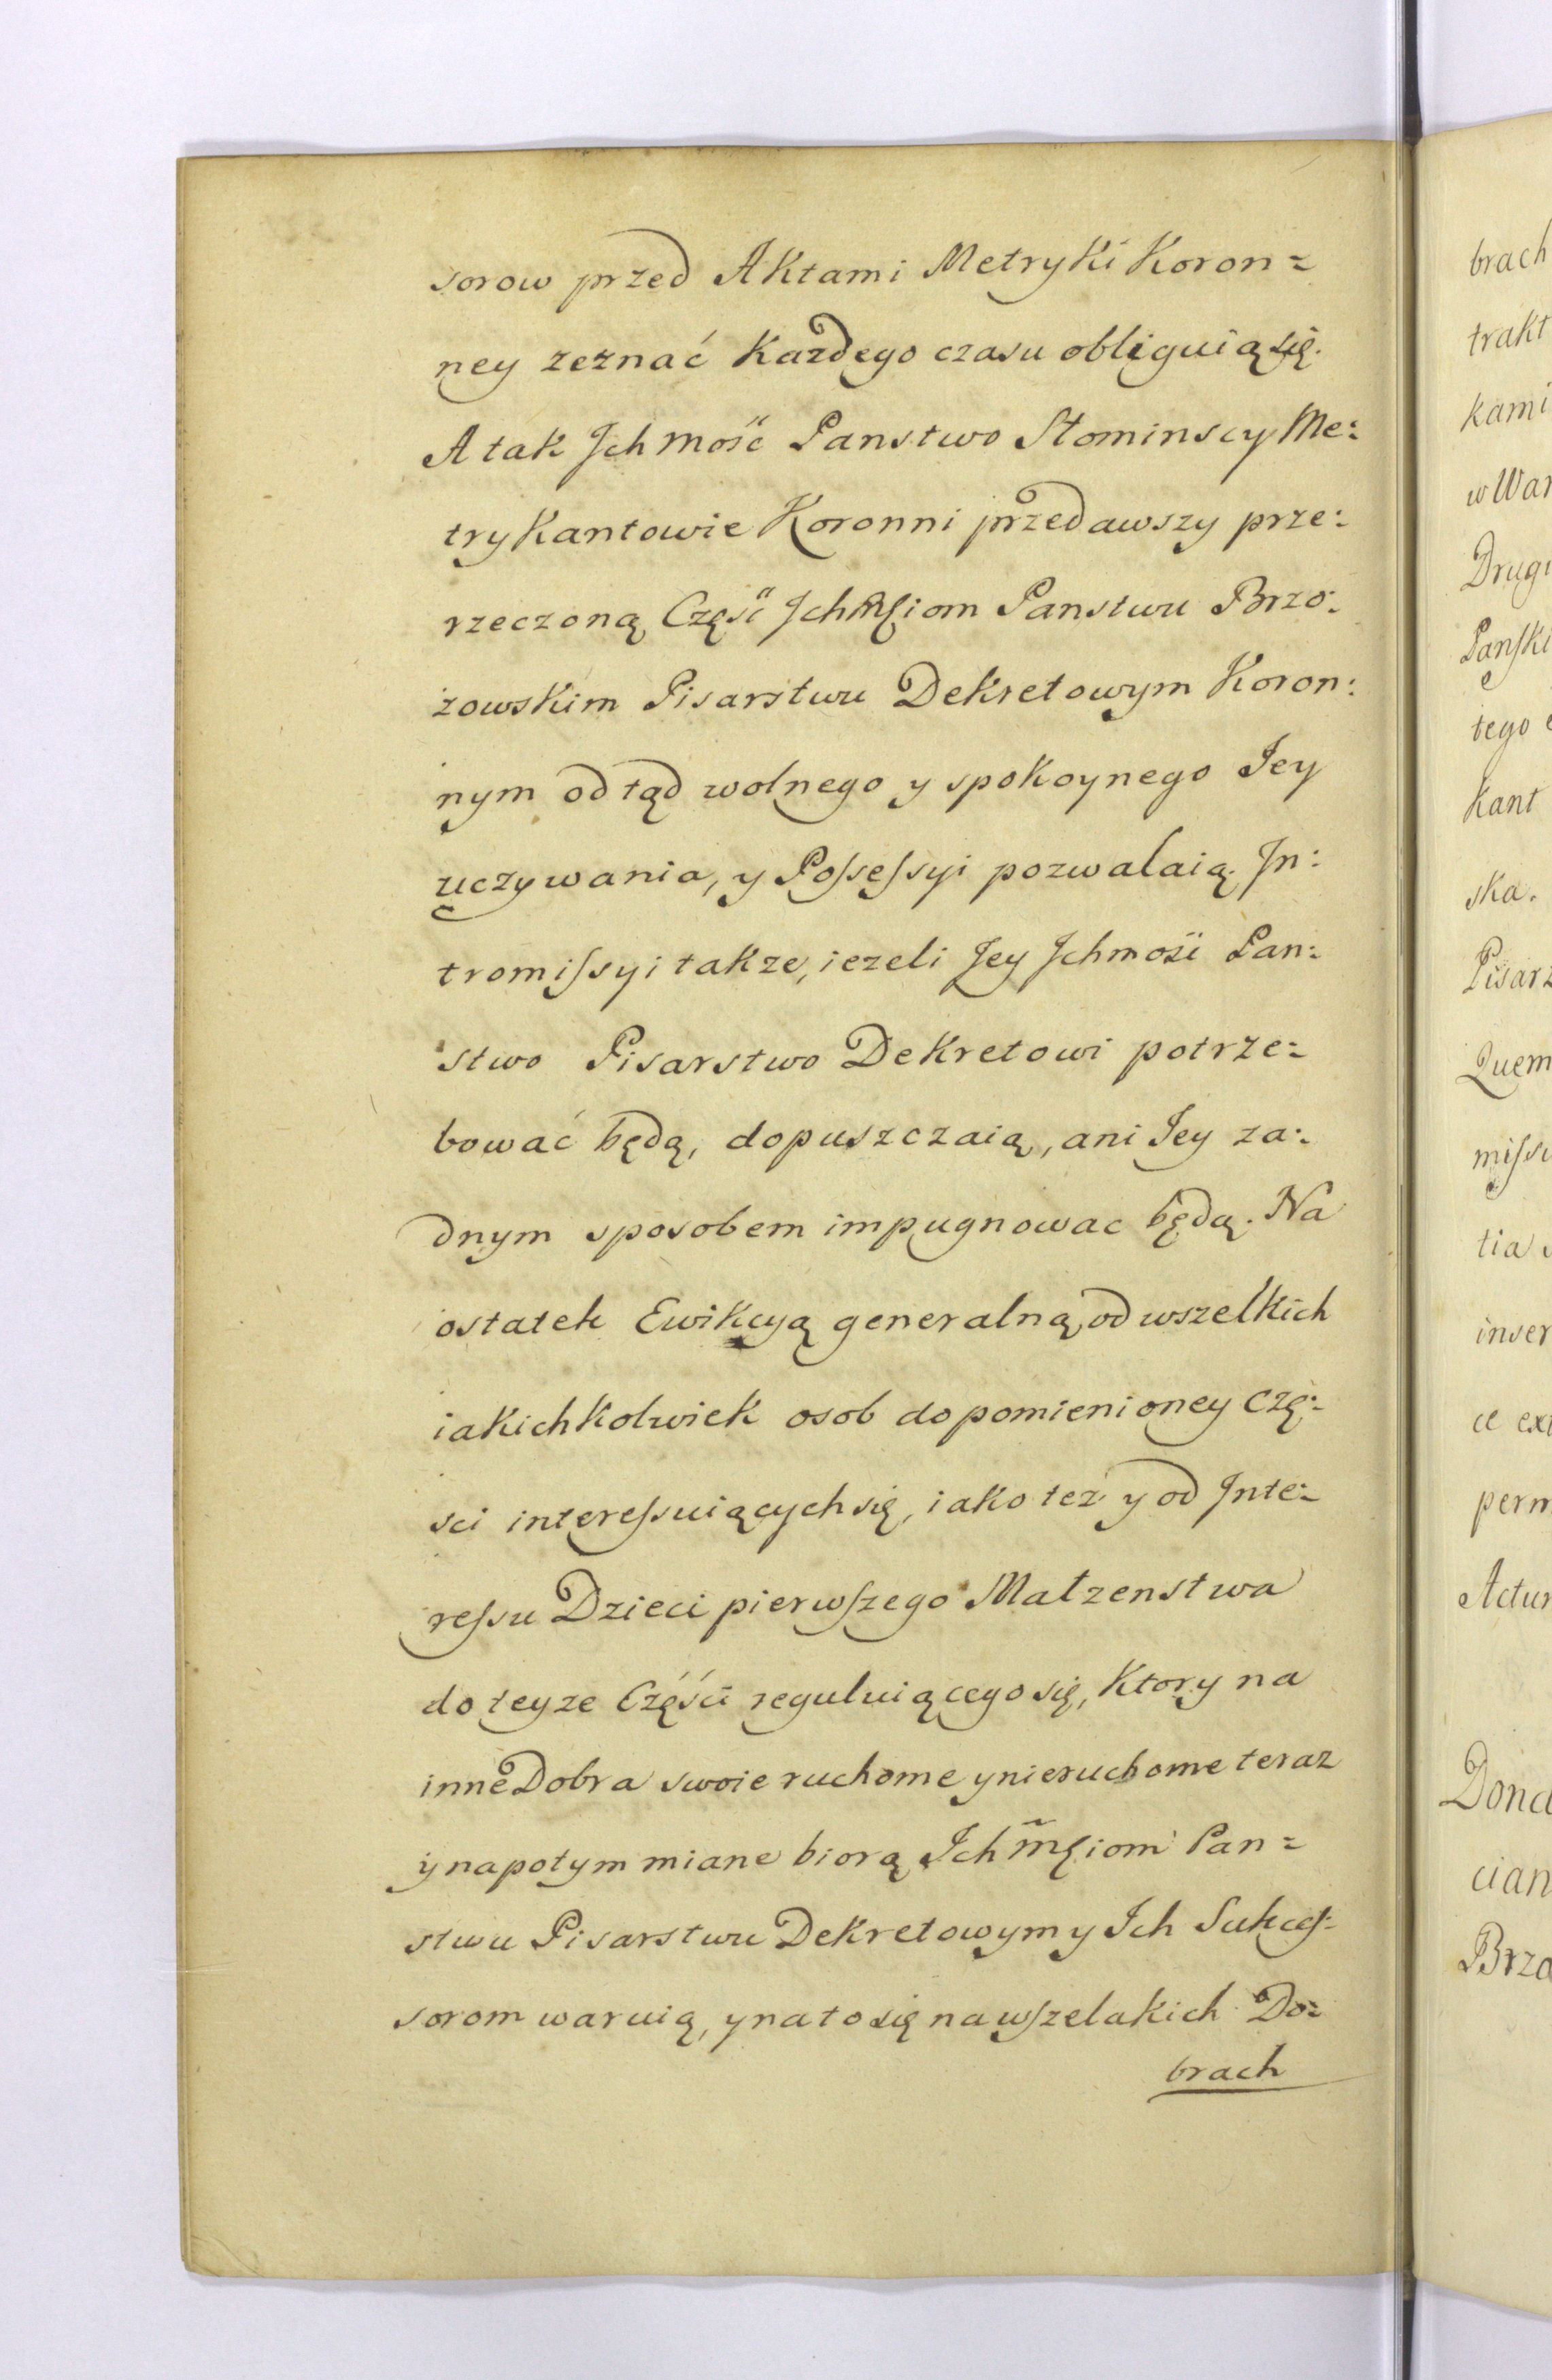 sorow przed Aktami Metryki Koron=
ney zeznać Każdego czasu obliguią się.
A tak Jchmość Panstwo Słominscy Me:
trykantowie Koronni przedawszy prze:
rzeczoną Część Jchmściom Panstwu Brzo:
zowskim Pisarstwu Dekretowym Koron:
nym odtąd wolnego y spokoynego Jey
uczywania, y Poſseſsyi pozwalaią. Jn:
tromiſsyi takze, iezeli Jey Jchmość Pan:
stwo Pisarstwo Dekretowi potrze:
bować będą, dopuszczaią, ani Jey za:
dnym sposobem impugnowac będą. Na
ostatek Ewikcyą generalną od wszelkich
iakichkolwiek osob do pomienioney Czę:
sci intereſsuiących się, iako też y od Jnte:
reſsu Dzieci pierwſzego Małzenstwa
do teyze Części reguluiącego się, Ktory na
inne Dobra swoie ruchome y nieruchome teraz
y napotym miane biorą Jchmściom Pan=
stwu Pisarstwu Dekretowym y Jch Sukceſ:
sorom waruią, y na to się na wſzelakich Do:
brach
brach
trakt
kami
w War
Drugi
Panſki
tego
kant
ska.
Pisarz
Quem
miſsi
tia
inser
ce ex
perm
Actum
Dond
cian
Brzo